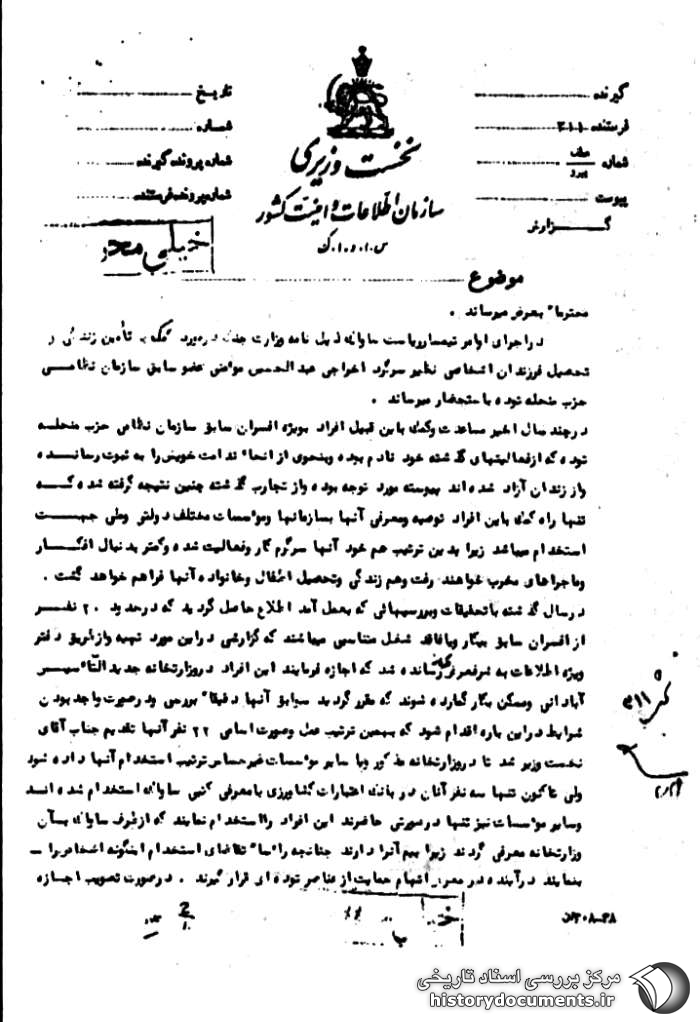 گیرنده
فرستنده ۳۱۱
شماره
پیوست
گزارش
نخست وزیری
سازمان اطلاعات و امنیت کشور
س.ا.و.ا.ک
تاریخ
شماره
شماره پرونده گیرنده
شماره پرونده فرستنده
خیلی محر
موضوع
محترما" بعرض میرساند .
در اجرای اوامر تیمسار ریاست ساواک ذیل نامه وزارت جنگ در مورد کمک به تأمین زندگی و
تحصیل فرزندان اشخاصی نظیر سرگرد اخراجی عبدالحسن عضو سابق سازمان نظامی
حزب منحله توده باستحضار میرساند .
در چند سال اخیر مساعدت وکمک باین قبیل افراد بویژه افسران سابق سازمان نظامی حزب منحله
توده که از فعالیتهای گذشته خود نادم بوده وبنحوی از انحاء ندامت خویش را به ثبوت رسانیده
واز زندان آزاد شده اند پیوسته مورد توجه بوده واز تجارب گذشته چنین نتیجه گرفته شده که
تنها راه کمک باین افراد توصیه ومعرفی آنها بسازمانها وموسسات مختلف دولتی وملی جهت
استخدام میباشد زیرا بدین ترتیب هم خود آنها سرگرم کار وفعالیت شده وکمتر بدنبال افکار
وماجراهای مخرب خواهند رفت وهم زندگی وتحصیل اطفال وخانواده آنها فراهم خواهد گشت .
در سال گذشته با تحقیقات وبررسیهائی که بعمل آمد اطلاع حاصل گردید که در حدود ۲۰ نفر
از افسران سابق بیکار ویا فاقد شغل متناسبی میباشند که گزارشی در این مورد تهیه واز طریق دفتر
ویژه اطلاعات به شرفعرض رسانده شد که اجازه فرمایند این افراد در وزارتخانه جدید التأسیس
آبادانی ومسکن بکار گمارده شوند که مقرر گردید سوابق آنها دقیقا" بررسی ودر صورت واجد بودن
شرایط در این باره اقدام شود که بهمین ترتیب عمل وصورت اسامی ۲۲ نفر آنها تقدیم جناب آقای
نخست وزیر شد تا در وزارتخانه مذکور ویا سایر موسسات غیر حساس ترتیب استخدام آنها داده شود
ولی تاکنون تنها سه نفر آنان در بانک اعتبارات کشاورزی با معرفی کتبی ساواک استخدام شده اند
وسایر موسسات نیز تنها در صورتی حاضرند این افراد را استخدام نمایند که از طرف ساواک بآن
وزارتخانه معرفی گردند زیرا بیم آنرا دارند چنانچه راسا" تقاضای استخدام اینگونه اشخاص را -
بنمایند در آینده در معرض اتهام حمایت از عناصر توده ای قرار گیرند . در صورت تصویب اجازه
۳۱۱
۲۸-۳۰۸
مرکز بررسی اسناد تاریخی
historydocuments.ir